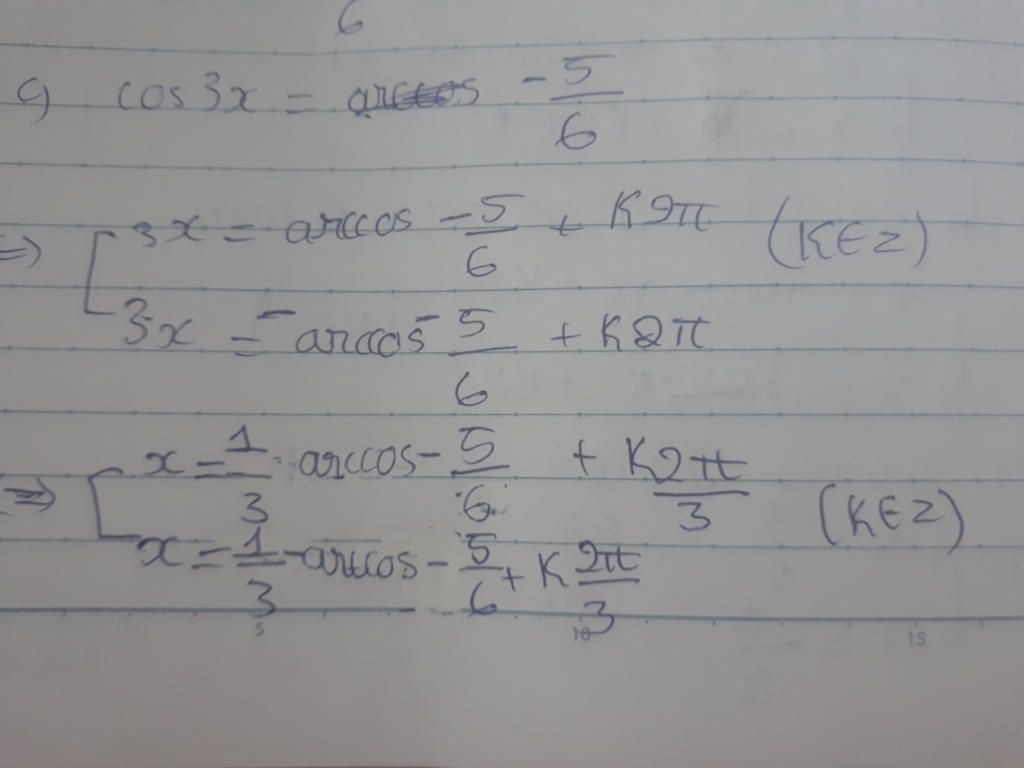 6
c) cos3x = - 5/6
=> [ 3x = arccos - 5/6 + K2π (K∈Z)
3x = - arccos - 5/6 + K2π
=> [ x = 1/3 . arccos - 5/6 + K2π/3 (K∈Z)
x = 1/3 - arccos - 5/6 + K 2π/3
5 10 15